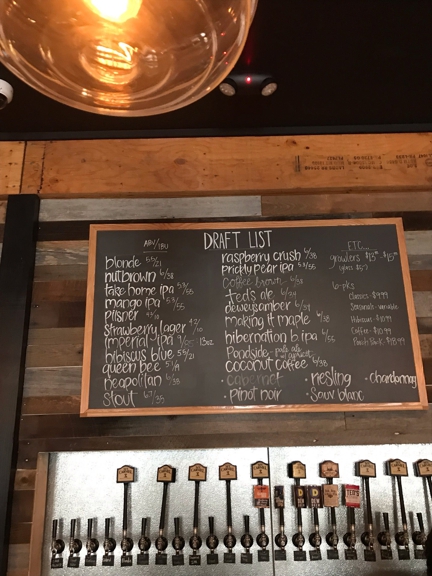 DRAFT LIST
ABV/IBU
blonde 5.5/21
nutbrown 6/38
take home ipa 5.3/55
mango ipa 5.3/55
pilsner
strawberry lager
imperial ipa 13oz
hibiscus blue 5.5/21
queen bee
neapolitan 6/38
stout 6.7/35
raspberry crush 6/38
prickly pear ipa 5.3/55
coffee brown 6/38
ted's ale
deweizamber
making it maple 6/38
hibernation b. ipa 6/55
Pondside pale ale w/ apricot
coconut coffee 6/38
• cabernet
• Pinot noir
• riesling
• Sauv blanc
• chardonnay
ETC...
growlers $13-$15
glass $7
6-pks
classics- $9.99
Seasonals- variable
Hibiscus- $10.99
Coffee- $10.99